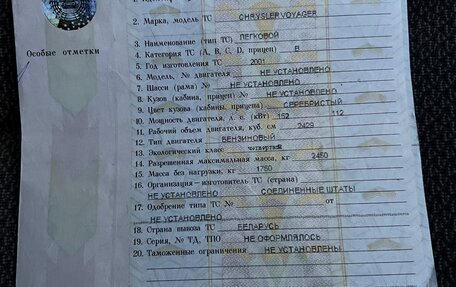 2. Марка, модель ТС CHRYSLER VOYAGER
3. Наименование (тип ТС) ЛЕГКОВОЙ
Особые отметки
4. Категория ТС (А, В, С, D, прицеп) В
5. Год изготовления ТС 2001
6. Модель, № двигателя НЕ УСТАНОВЛЕНО
7. Шасси (рама) № НЕ УСТАНОВЛЕНО
8. Кузов (кабина, прицеп) № НЕ УСТАНОВЛЕНО
9. Цвет кузова (кабины, прицепа) СЕРЕБРИСТЫЙ
10. Мощность двигателя, л. с. (кВт) 152 112
11. Рабочий объем двигателя, куб. см 2429
12. Тип двигателя БЕНЗИНОВЫЙ
13. Экологический класс четвертый
14. Разрешенная максимальная масса, кг 2450
15. Масса без нагрузки, кг 1760
16. Организация—изготовитель ТС (страна)
НЕ УСТАНОВЛЕНО СОЕДИНЕННЫЕ ШТАТЫ
17. Одобрение типа ТС № от
НЕ УСТАНОВЛЕНО
18. Страна вывоза ТС БЕЛАРУСЬ
19. Серия, № ТД, ТПО НЕ ОФОРМЛЯЛОСЬ
20. Таможенные ограничения НЕ УСТАНОВЛЕНЫ